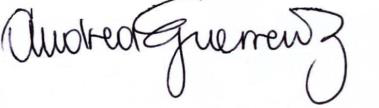 Andrea Guerrero Z